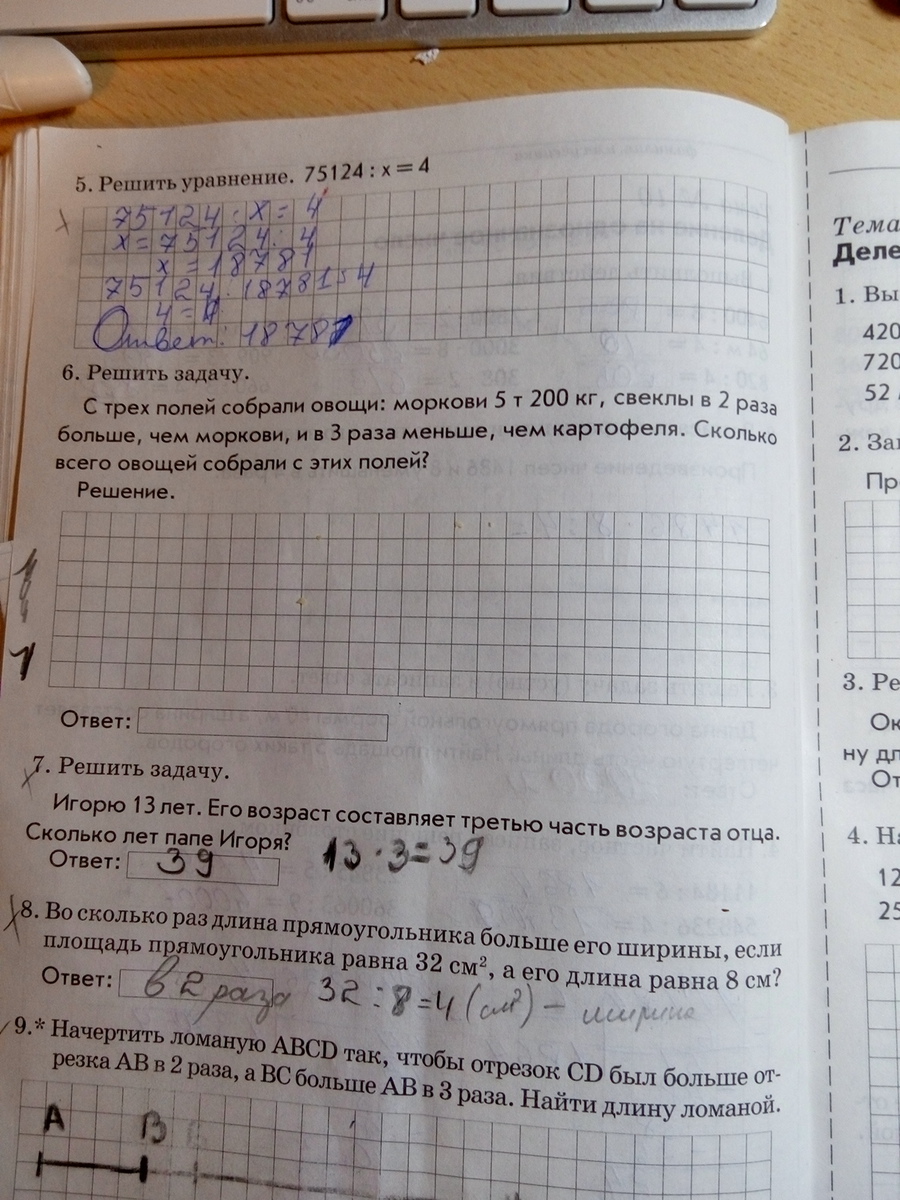 5. Решить уравнение. 75124 : x = 4
75124 : x = 4
x = 75124 : 4
x = 18781
75124 : 18781 = 4
4 = 4
Ответ: 18781
6. Решить задачу.
С трех полей собрали овощи: моркови 5 т 200 кг, свеклы в 2 раза
больше, чем моркови, и в 3 раза меньше, чем картофеля. Сколько
всего овощей собрали с этих полей?
Решение.
Ответ:
7. Решить задачу.
Игорю 13 лет. Его возраст составляет третью часть возраста отца.
Сколько лет папе Игоря?
Ответ: 39 13 · 3 = 39
8. Во сколько раз длина прямоугольника больше его ширины, если
площадь прямоугольника равна 32 см², а его длина равна 8 см?
Ответ: в 2 раза 32 : 8 = 4 (см²) – ширина
9.* Начертить ломаную ABCD так, чтобы отрезок CD был больше от-
резка AB в 2 раза, а BC больше AB в 3 раза. Найти длину ломаной.
A B
Тема
Деле
1. Вы
420
720
52
2. За
Пр
3. Ре
Ок
ну дл
От
4. На
12
25